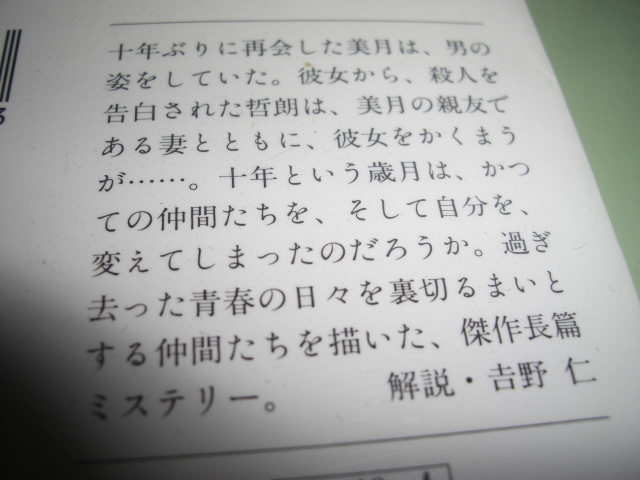 十年ぶりに再会した美月は、男の
姿をしていた。彼女から、殺人を
告白された哲朗は、美月の親友で
ある妻とともに、彼女をかくまう
が……。十年という歳月は、かつ
ての仲間たちを、そして自分を、
変えてしまったのだろうか。過ぎ
去った青春の日々を裏切るまいと
する仲間たちを描いた、傑作長篇
ミステリー。
解説・吉野 仁
3